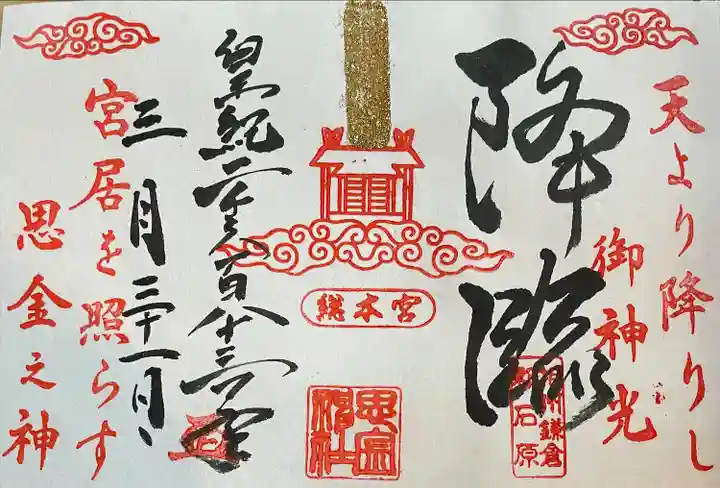 天より降りし
御神光
降臨
鎌倉
石原
総本宮
思金
神社
皇紀二千六百八十三年
三月三十一日
宮居を照らす
思金之神